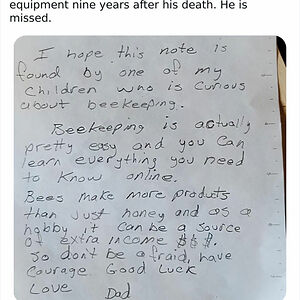 equipment nine years after his death. He is
missed.
I hope this note is
found by one of my
children who is curious
about beekeeping.
Beekeeping is actually
pretty easy and you can
learn everything you need
to know online.
Bees make more products
than just honey and as a
hobby it can be a source
of extra income $$$.
So don't be afraid, have
courage. Good Luck
Love
Dad